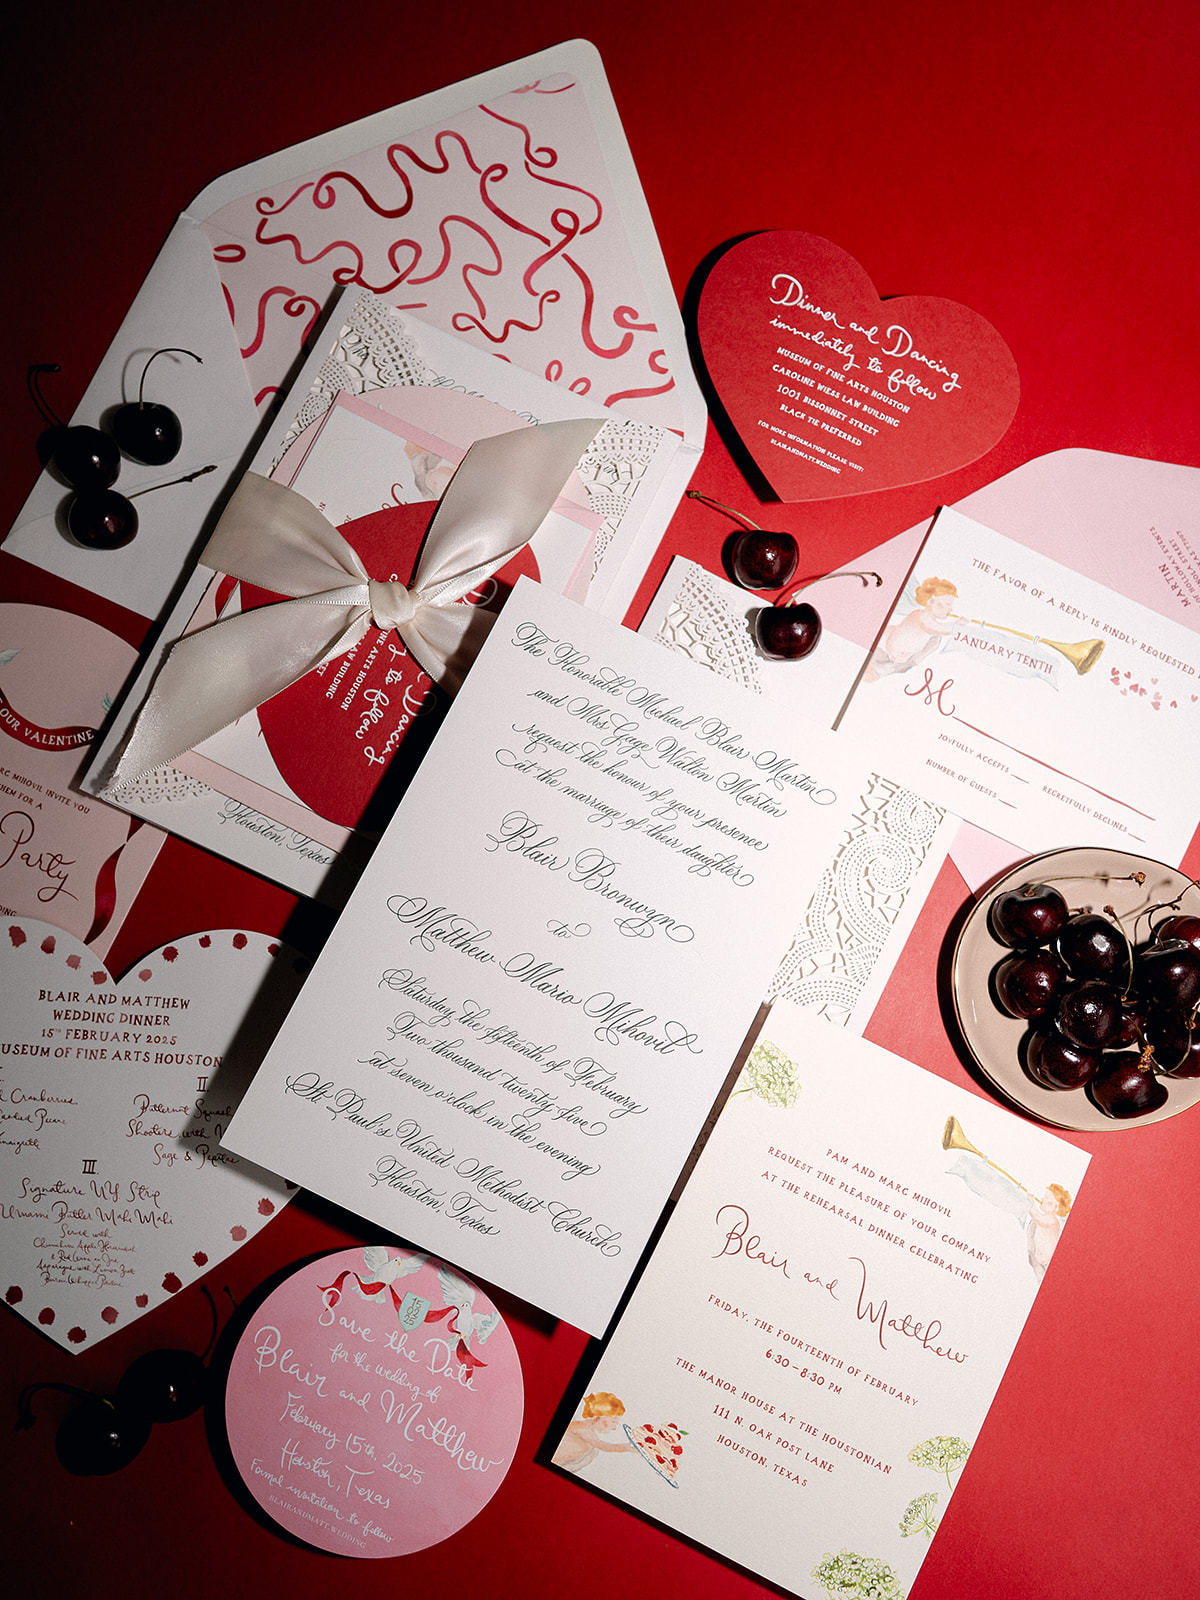 Dinner and Dancing
immediately to follow
MUSEUM OF FINE ARTS HOUSTON
CAROLINE WIESS LAW BUILDING
1001 BISSONNET STREET
BLACK TIE PREFERRED
FOR MORE INFORMATION PLEASE VISIT:
BLAIRANDMATT.WEDDING
MARTIN
THE FAVOR OF A REPLY IS KINDLY REQUESTED
JANUARY TENTH
M
JOYFULLY ACCEPTS
NUMBER OF GUESTS
REGRETFULLY DECLINES
Dancing
to follow
FINE ARTS HOUSTON
LAW BUILDING
Houston, Texas
The Honorable Michael Blair Martin
and Mrs Gage Walton Martin
request the honour of your presence
at the marriage of their daughter
Blair Bronwyn
to
Matthew Mario Mihovil
Saturday, the fifteenth of February
Two thousand twenty five
at seven o'clock in the evening
St. Paul's United Methodist Church
Houston, Texas
OUR VALENTINE
MARC MIHOVIL INVITE YOU
THEM FOR A
Party
BLAIR AND MATTHEW
WEDDING DINNER
15TH FEBRUARY 2025
MUSEUM OF FINE ARTS HOUSTON
Cranberries
II.
Butternut Squash
Shooters with
Sage & Pepitas
III.
Signature NY Strip
Umami Butter Mahi Mahi
Served with
Asparagus with Lemon Zest
15
02
2025
Save the Date
for the wedding of
Blair and Matthew
February 15th, 2025
Houston, Texas
Formal invitation to follow
BLAIRANDMATT.WEDDING
PAM AND MARC MIHOVIL
REQUEST THE PLEASURE OF YOUR COMPANY
AT THE REHEARSAL DINNER CELEBRATING
Blair and Matthew
FRIDAY, THE FOURTEENTH OF FEBRUARY
6:30 – 8:30 PM
THE MANOR HOUSE AT THE HOUSTONIAN
111 N. OAK POST LANE
HOUSTON, TEXAS